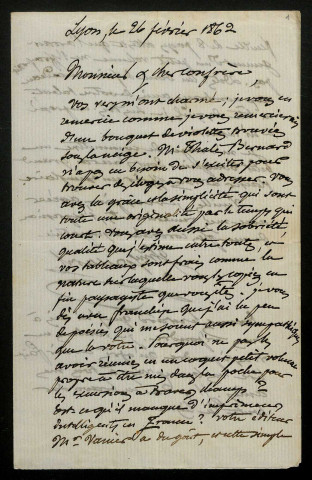 Lyon, le 26 février 1862
Monsieur & cher confrère
Vos vers m'ont charmé ; je vous en
remercie comme je vous remercierais
d'un bouquet de violettes trouvées
sous la neige. Mr Thalès Bernard
n'a pas eu besoin de s'exciter pour
trouver des éloges à vous adresser. Vous
avez la grâce et la simplicité qui sont
toute une originalité par le temps qui
court. Vous avez aussi la sobriété,
qualité que j'estime entre toutes, et
vos tableaux sont frais comme la
nature sur laquelle vous les copiez en
fin paysagiste que vous êtes ; je vous
dis avec franchise que j'ai lu peu
de poésies qui me soient aussi sympathiques
que la vôtre. Pourquoi ne pas les
avoir réunies en un coquet petit volume
propre à être mis dans la poche par
les excursions à travers champs ?
Est-ce qu'il manque d'imprimeurs
intelligents en France ? Votre éditeur
Mr Vanier a du goût, et cette simple